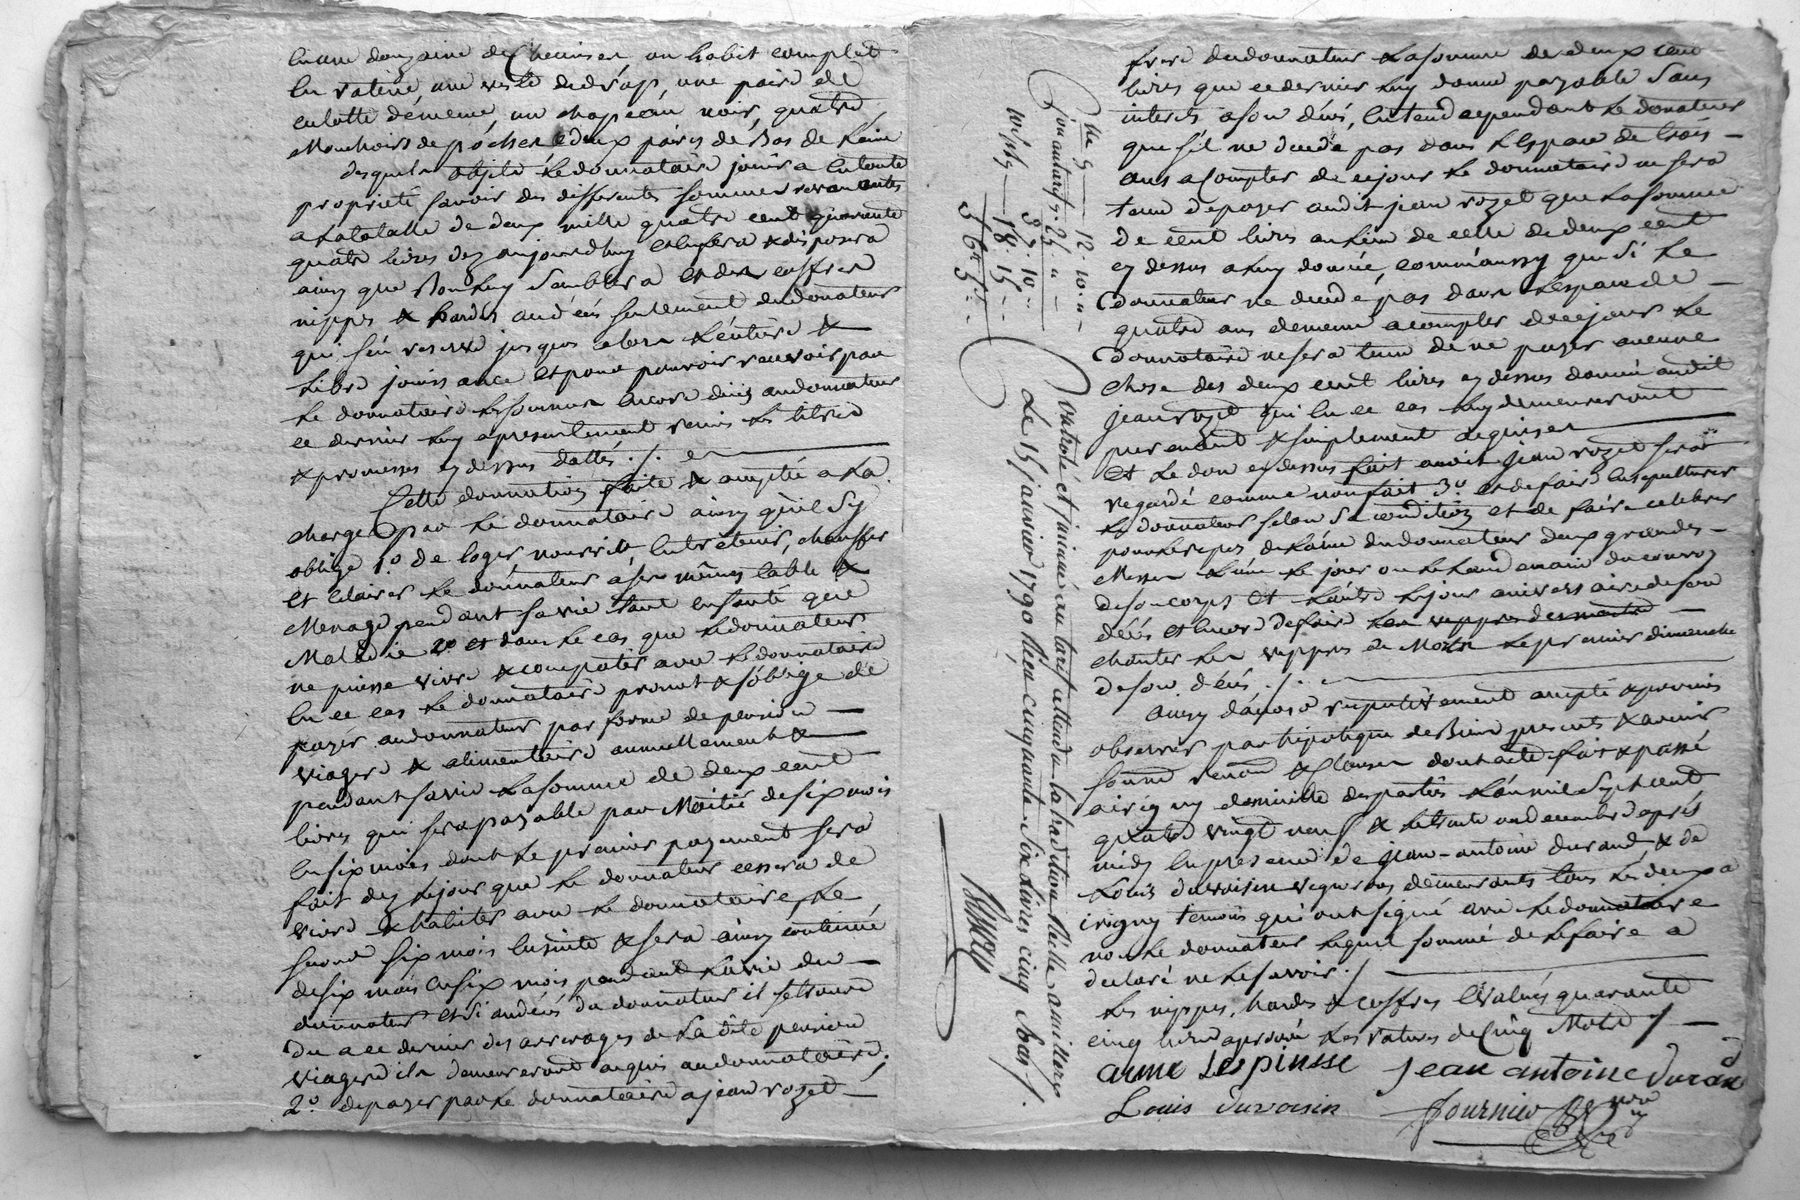 en une douzaine de Chemises un habit complet
en ratine, une veste de drap, une paire de
culotte de meme, un chapeau noir, quatre
Mouchoirs de pôches & deux paires de Bas de Laine
desquels objets Le donnataire jouira en toute
propriété savoir des differentes sommes revenantes
a La totalle de deux mille quatre cent quarante
quatre livres dez aujourdhuy et disposera
ainsy que Bon Luy Semblera et des coffres
nippes & hardes au décés seulement du donnateur
qui s'en reserve jusques alors L'entiere &
Libre jouissance et pour pouvoir recevoir par
Le donnataire Les sommes encore düés au donnateur
ce dernier Luy a presentement remis Les titres
& promesses cy dessus dattés ./.
Cette donnation faite & acceptée a La
charge par Le donnataire ainsy qu'il Sy
oblige 1.º de loger, nourrir, Entretenir, chauffer
et Eclairer Le donnateur a ses mêmes table &
Menage pendant sa vie tant en santé que
Maladie 2º et dans Le cas que Le donnateur
ne puisse vivre & compatir avec Le donnataire
en ce cas Le donnataire promet & s'oblige de
payer au donnateur par forme de pension
viagere & alimentaire annuellement &
pendant sa vie La somme de deux cent
livres qui sera payable par Moitié de six mois
en six mois dont Le premier payement sera
fait dez Le jour que Le donnateur cessera de
vivre & habiter avec Le donnataire, Le
second six mois ensuite & sera ainsy continué
de six mois en six mois pendant La vie du
donnateur et si au décés du donnateur il se trouve
du a ce dernier des arrerages de La dite pension
viagere ils demeureront acquis au donnataire.
2.º de payer par Le donnataire a jean rozet
frere du donnateur La somme de deux cent
livres que ce dernier Luy donne payable Sans
interets a son décés, Entend cependant Le donnateur
que s'il ne decede pas dans L'Espace de trois
ans a Compter de ce jour Le donnataire ne sera
tenu de payer audit jean rozet que La somme
de cent livres au Lieu de celle de deux cent
cy dessus a Luy donnée, comme aussy que Si Le
donnateur ne decede pas dans L'espace de
quatre ans de meme a compter de ce jour Le
donnataire ne sera tenu de ne payer aucune
chose des deux cent livres cy dessus donnée audit
jean rozet qui en ce cas Luy demeureront
purement & simplement acquises
et Le don cy dessus fait audit jean rozet sera
regardé comme non fait 3º et de faire ensepulturer
Le donnateur selon Sa condition et de faire celebrer
pour Le repos de L'ame du donnateur deux grandes
Messes L'une Le jour ou Le Lendemain du convoy
de son corps et L'autre Le jour anniversaire de son
décés et encore de faire
chanter Les veppres des Morts Le premier dimanche
de son décés ./.
ainsy d'accord respectivement accepté & promis
observer par hipoteque de Biens presents & avenir
soumis renon & Clauses dont acte fait & passé
a irigny domicille des parties L'an mil Sept cent
quatre vingt neuf & Le trente un decembre apres
midy En presence de jean-antoine durand, & de
Louis duvoisin vignerons demeurants tous Les deux a
irigny temoins qui ont signé avec Le donnataire
non Le donnateur Lequel sommé de Le faire a
declaré ne Le savoir ./
Les nippes, hardes & coffres Evalués quarante
cinq livres approuvé Les ratures de Cinq Mots ./
aime Lespinsse
jean antoine durand
Louis duvoisin
fournier
Controlé et insinué au tarif attendu la tradition réelle a millery
Le 15 janvier 1790 Reçu cinquante-Six Livres cinq Sols ./.
12 . 10 . "
25 "
37 . 10 ..
18 . 15 ..
56tt 5s